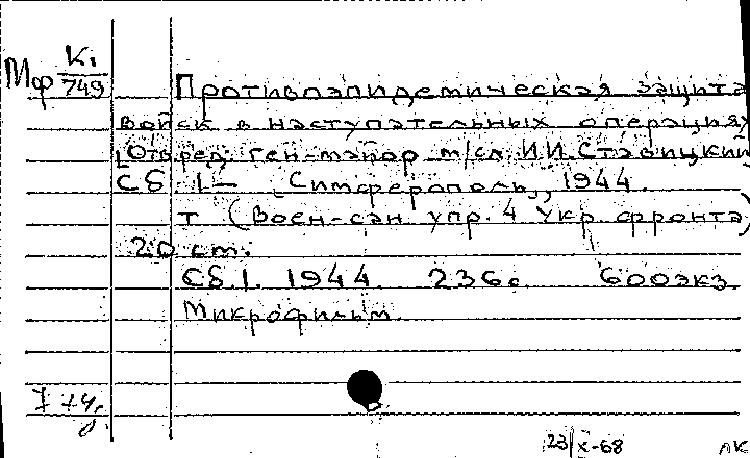 Мф К1/749
Противоэпидемическая защита
войск в наступательных операциях
[Отв. ред. ген-майор м/сл. И.И. Ставицкий
Сб. 1— Симферополь, 1944.
т (Воен-сан упр. 4 Укр фронта)
20 см.
Сб. 1. 1944. 236с 600 экз.
Микрофильм.
23/X-68